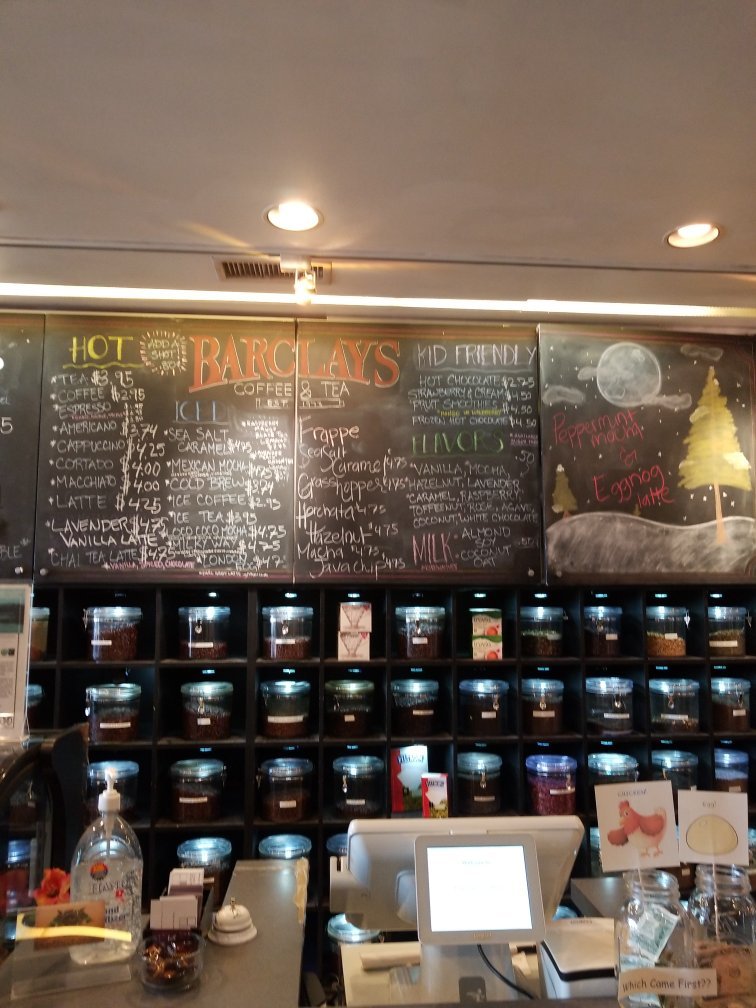 HOT
ADD A
SHOT!
TEA $3.95
COFFEE $2.95
ESPRESSO
AMERICANO
CAPPUCCINO 4.25
CORTADO 4.00
MACCHIATO 4.00
LATTE 4.25
LAVENDER $4.75
VANILLA LATTE
CHAI TEA LATTE $4.75
BARCLAYS
COFFEE & TEA
ICED
SEA SALT
CARAMEL $4.75
MEXICAN MOCHA
COLD BREW
ICE COFFEE $2.95
ICE TEA $3.95
COCO MOCHA
MILKY WAY 4.75
LONDON
Frappe
Sea Salt
Caramel $4.75
Grasshopper $4.75
Horchata $4.75
Hazelnut $4.75
Macha $4.75
Java chip $4.75
KID FRIENDLY
HOT CHOCOLATE $2.75
STRAWBERRY & CREAM $4.50
FRUIT SMOOTHIE $4.50
FROZEN HOT CHOCOLATE $4.50
FLAVORS
.50
VANILLA, MOCHA,
HAZELNUT, LAVENDER
CARAMEL, RASPBERRY,
TOFFEENUT, ROSE, AGAVE,
COCONUT, WHITE CHOCOLATE
MILK: ALMOND
SOY
COCONUT
OAT
.50
Peppermint
mocha
&
Eggnog
latte
CHICKEN!
Egg!
Which Came First??